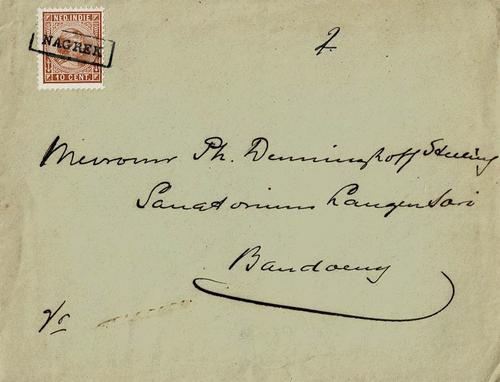 NED. INDIE
NAGREK
10 CENT.
2.
Mevrouw Ph. Denninghoff Stelling
Sanatorium Langensari
Bandoeng